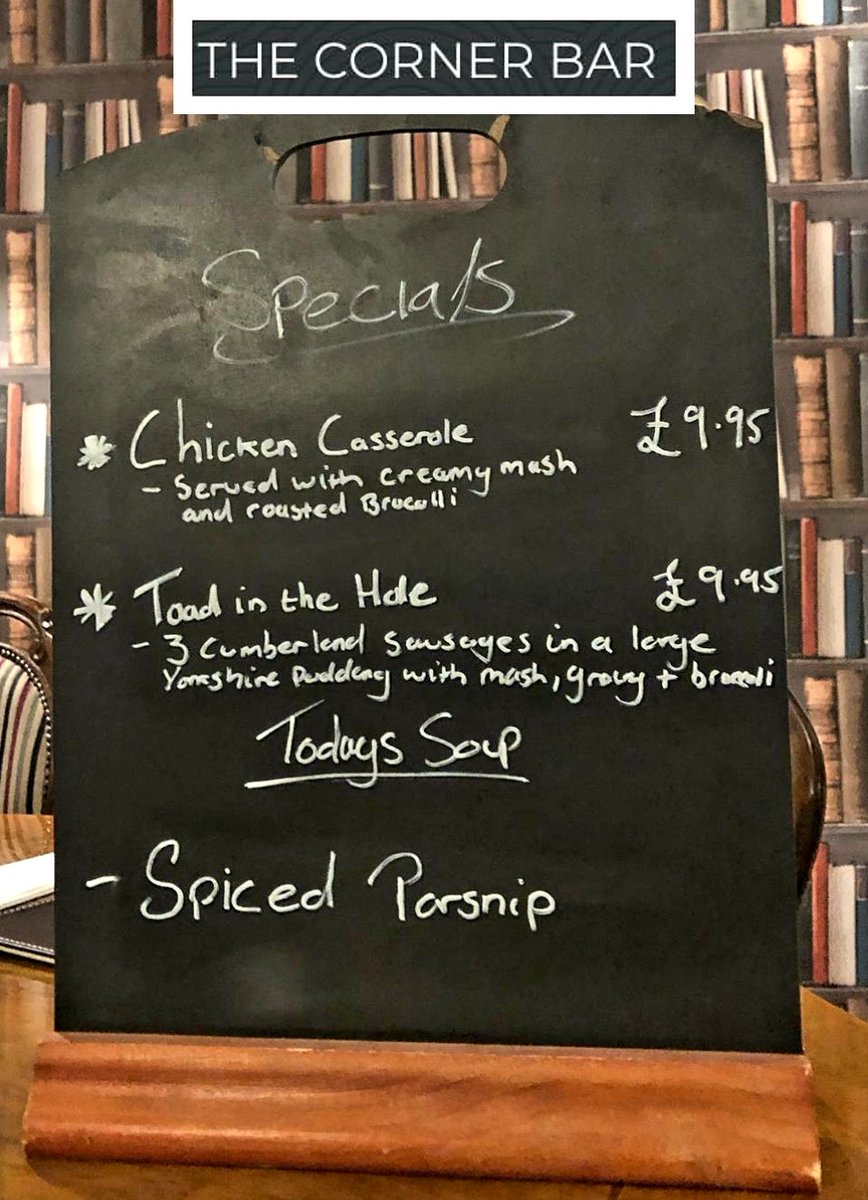 THE CORNER BAR
Specials
* Chicken Casserole £9.95
- Served with creamy mash
and roasted Brocolli
* Toad in the Hole £9.95
- 3 Cumberland Sausages in a large
Yorkshire Pudding with mash, gravy + broccoli
Todays Soup
- Spiced Parsnip